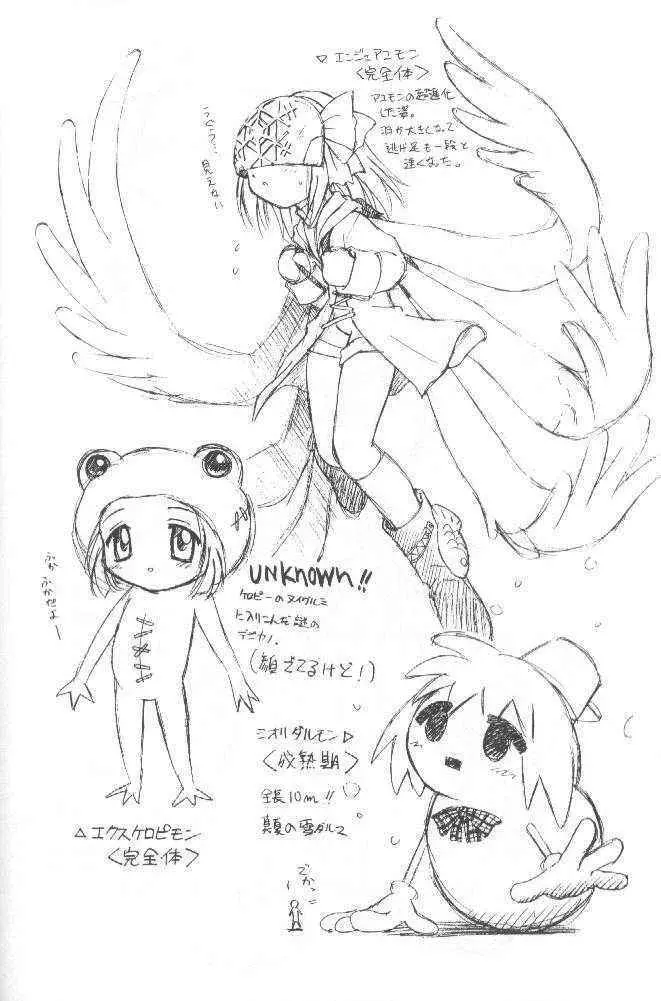 ▽ エンジェアユモン
<完全体>
アユモンの超進化
した姿。
羽が大きくなって
逃げ足も一段と
速くなった。
見えない
UNKNOWN!!
ケロピーのヌイグルミ
に入りこんだ謎の
デジカノ。
(顔でてるけど!)
△エクスケロピモン
<完全体>
ミオリダルモン▷
<成熟期>
全長10m!!
真夏の雪ダルマ
でかっ